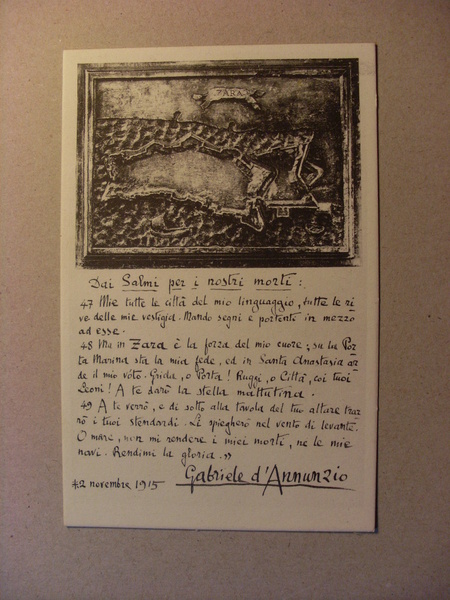 ZARA
Dai Salmi per i nostri morti:
47 Mie tutte le città del mio linguaggio, tutte le ri
ve delle mie vestigia. Mando segni e portenti in mezzo
ad esse.
48 Ma in Zara è la forza del mio cuore; su la Por
ta Marina sta la mia fede, ed in Santa Anastasia ar
de il mio vóto. Grida, o Porta! Ruggi, o Città, coi tuoi
Leoni! A te darò la stella mattutina.
49 A te verrò, e di sotto alla tavola del tuo altare trar
rò i tuoi stendardi. Li spiegherò nel vento di levante.
O mare, non mi rendere i miei morti, ne le mie
navi. Rendimi la gloria.»
Gabriele d'Annunzio
2 novembre 1915